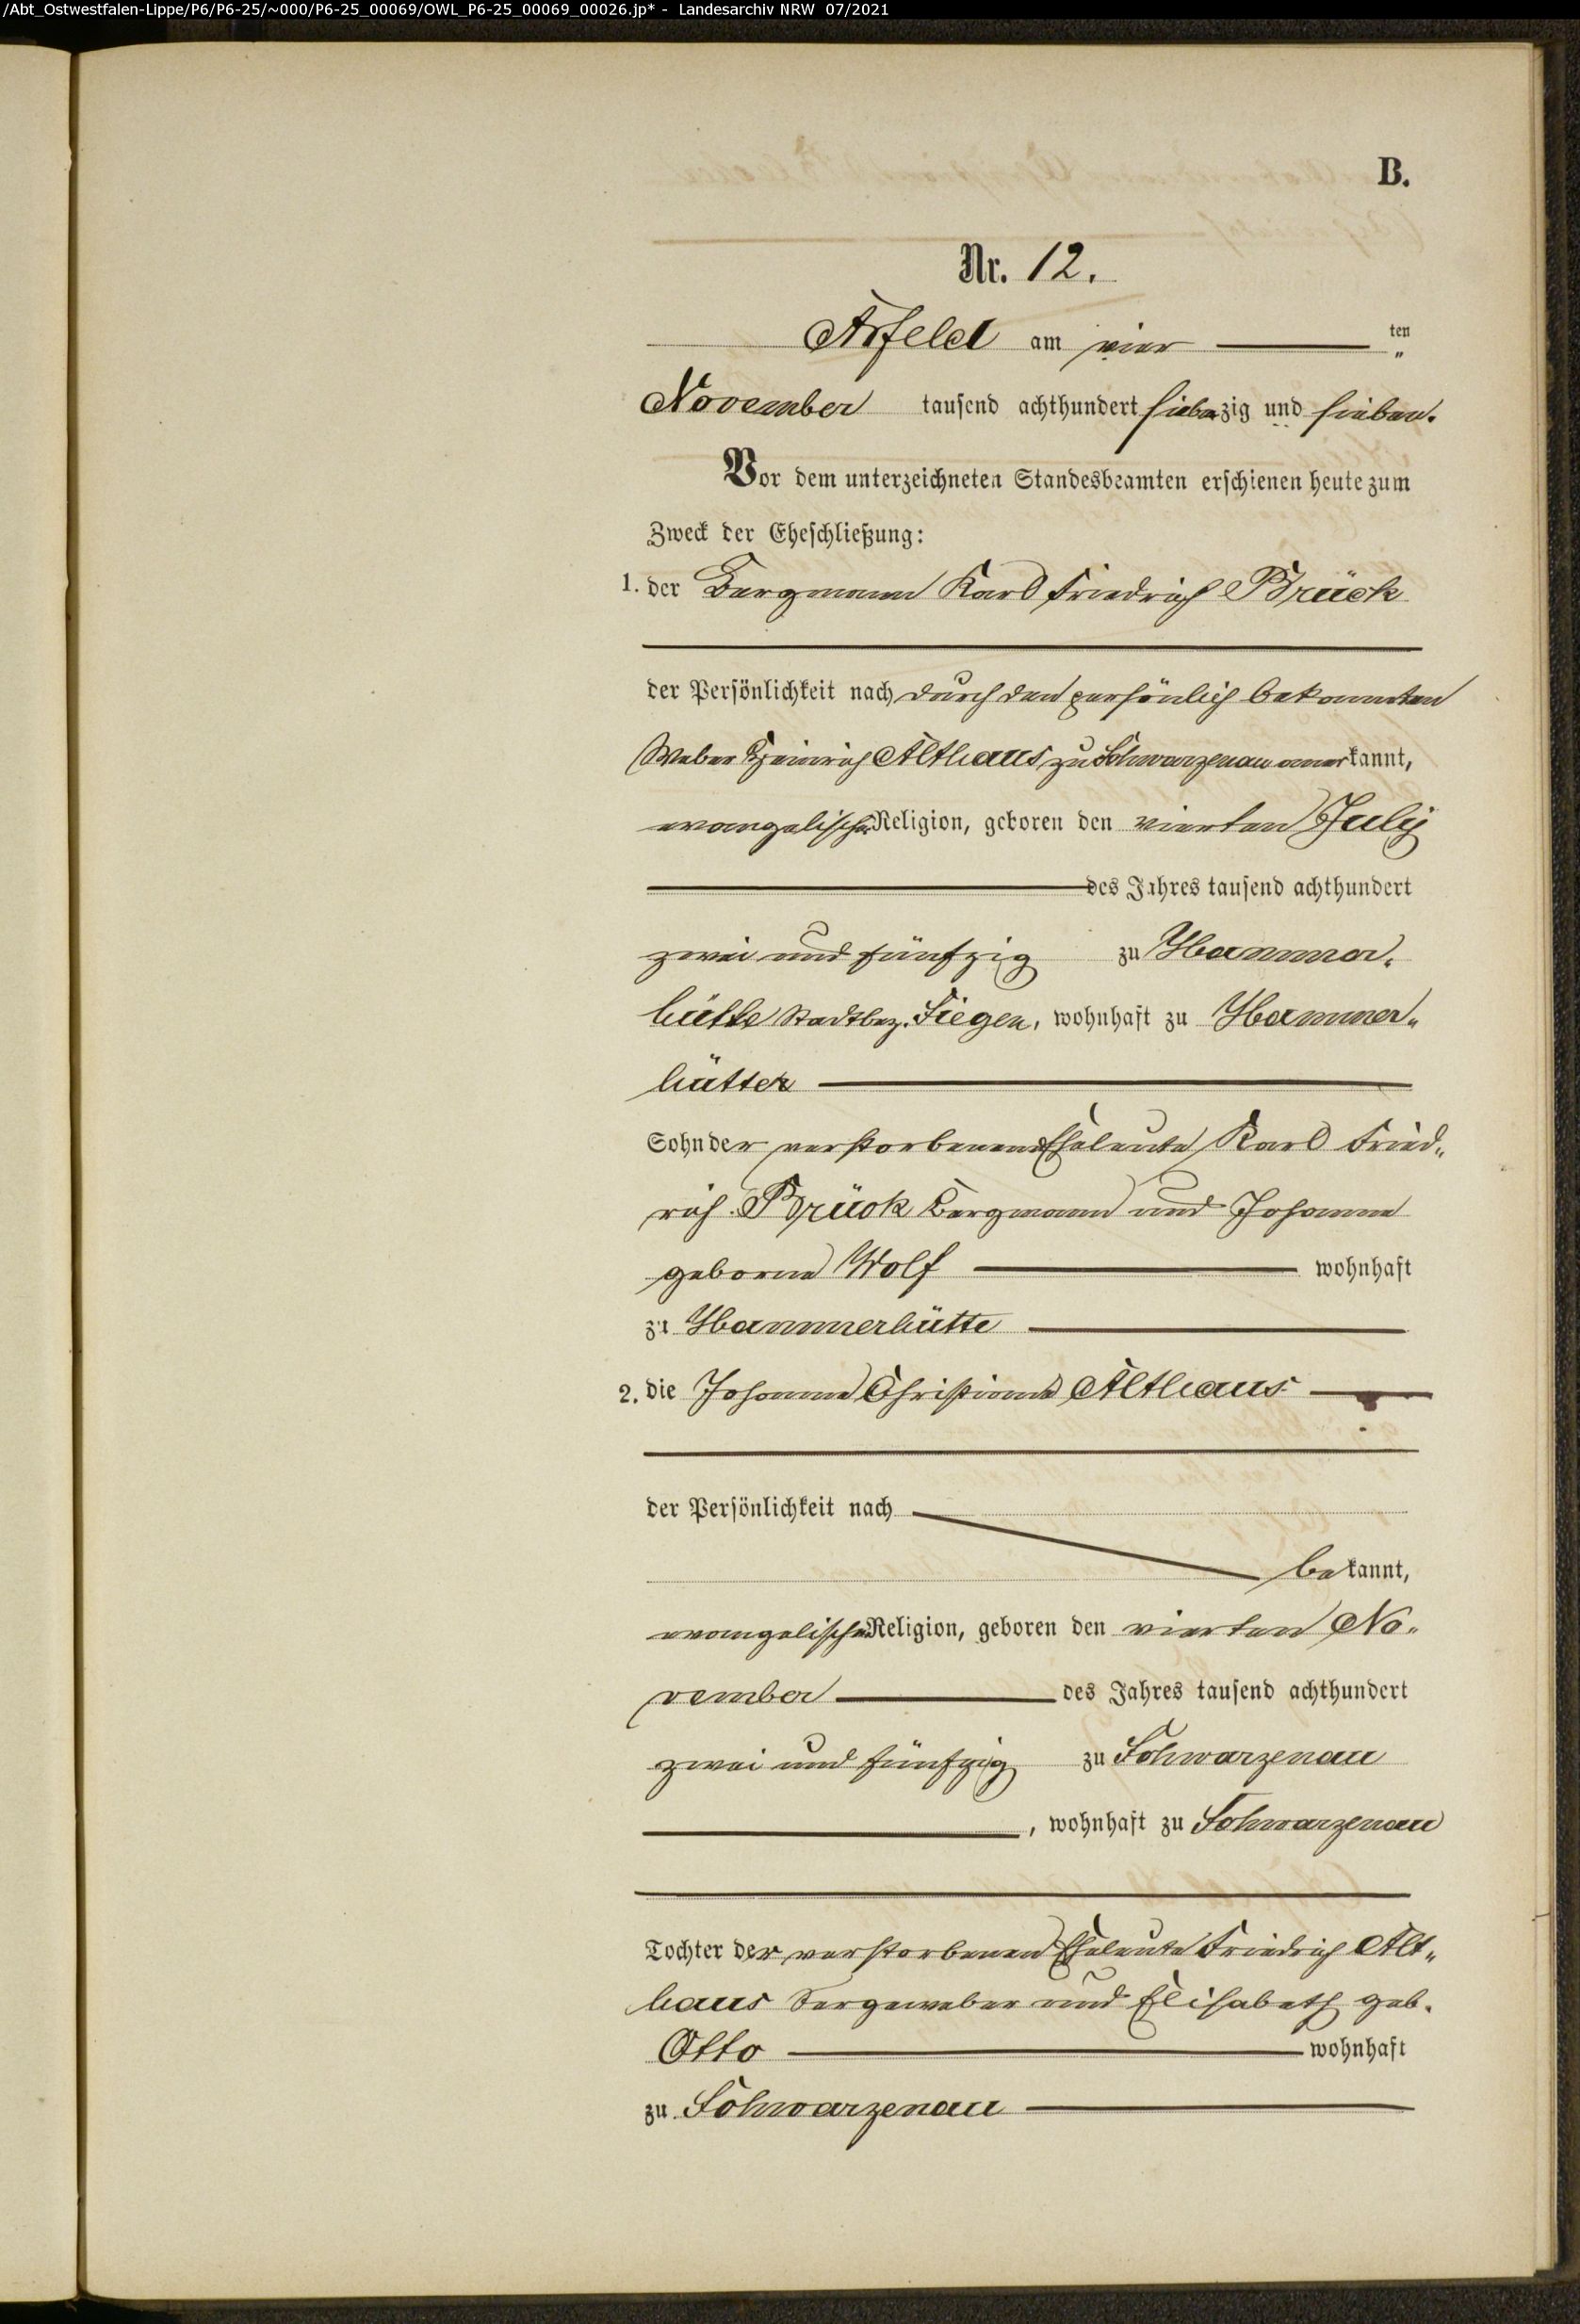 /Abt_Ostwestfalen-Lippe/P6/P6-25/~000/P6-25_00069/OWL_P6-25_00069_00026.jp* - Landesarchiv NRW 07/2021
B.
Nr. 12.
Arfeld am vier ten
November tausend achthundert siebenzig und sieben.
Vor dem unterzeichneten Standesbeamten erschienen heute zum
Zweck der Eheschließung:
1. der Bergmann Karl Friedrich Brück
der Persönlichkeit nach durch den persönlich bekannten
Weber Heinrich Althaus zu Schwarzenau anerkannt,
evangelischer Religion, geboren den vierten July
des Jahres tausend achthundert
zwei und fünfzig zu Hammer-
hütte Stadtbez. Siegen, wohnhaft zu Hammer-
hütte
Sohn der verstorbenen Eheleute Karl Fried-
rich Brück Bergmann und Johanne
geborne Wolf wohnhaft
zu Hammerhütte
2. die Johanne Christiane Althaus
der Persönlichkeit nach
bekannt,
evangelischer Religion, geboren den vierten No-
vember des Jahres tausend achthundert
zwei und fünfzig zu Schwarzenau
, wohnhaft zu Schwarzenau
Tochter der verstorbenen Eheleute Friedrich Alt-
haus Sergeweber und Elisabeth geb.
Otto wohnhaft
zu Schwarzenau